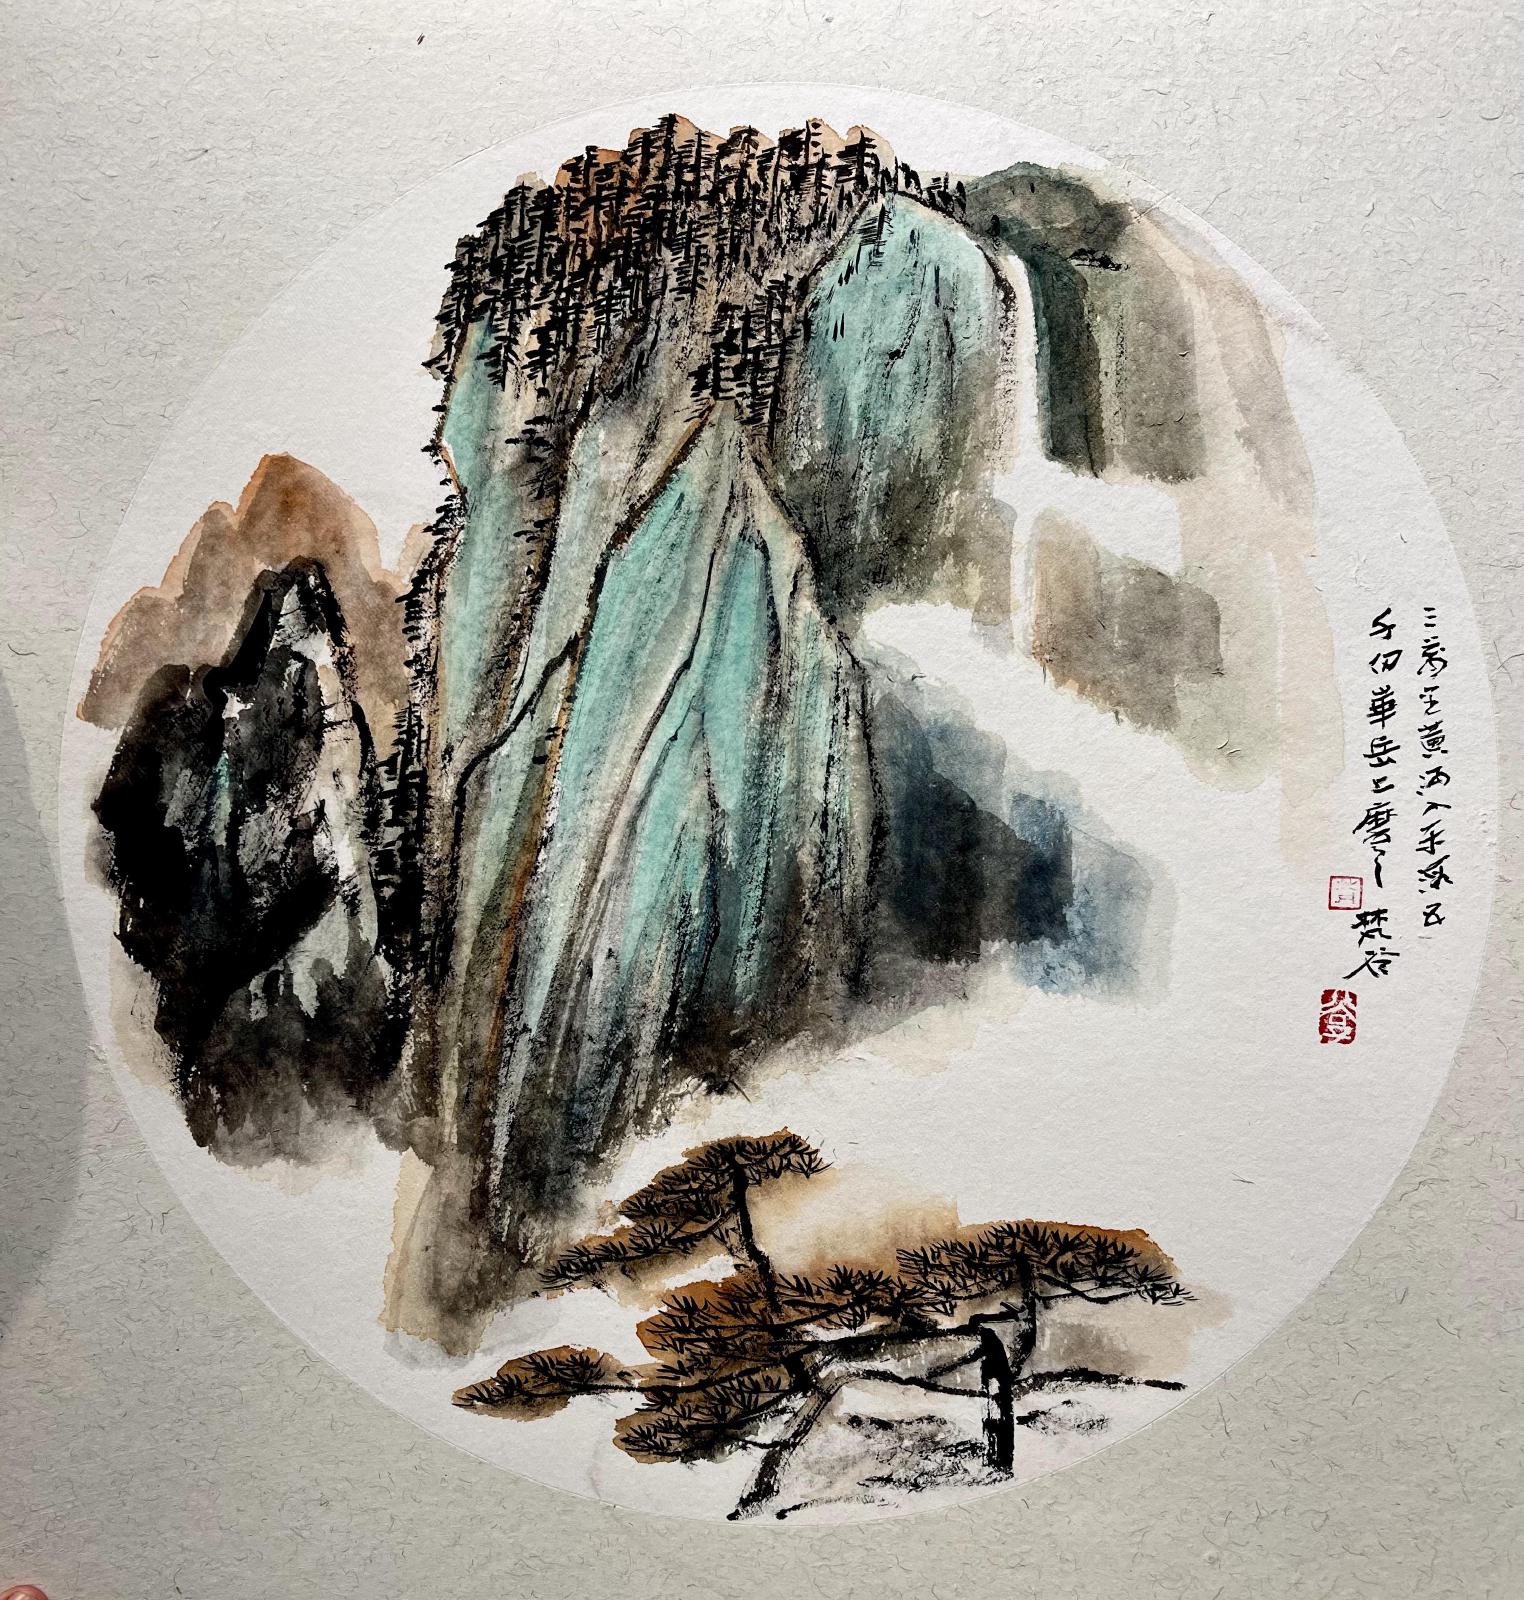 三萬里黃河入东海五
千仞華岳上摩天 梵谷